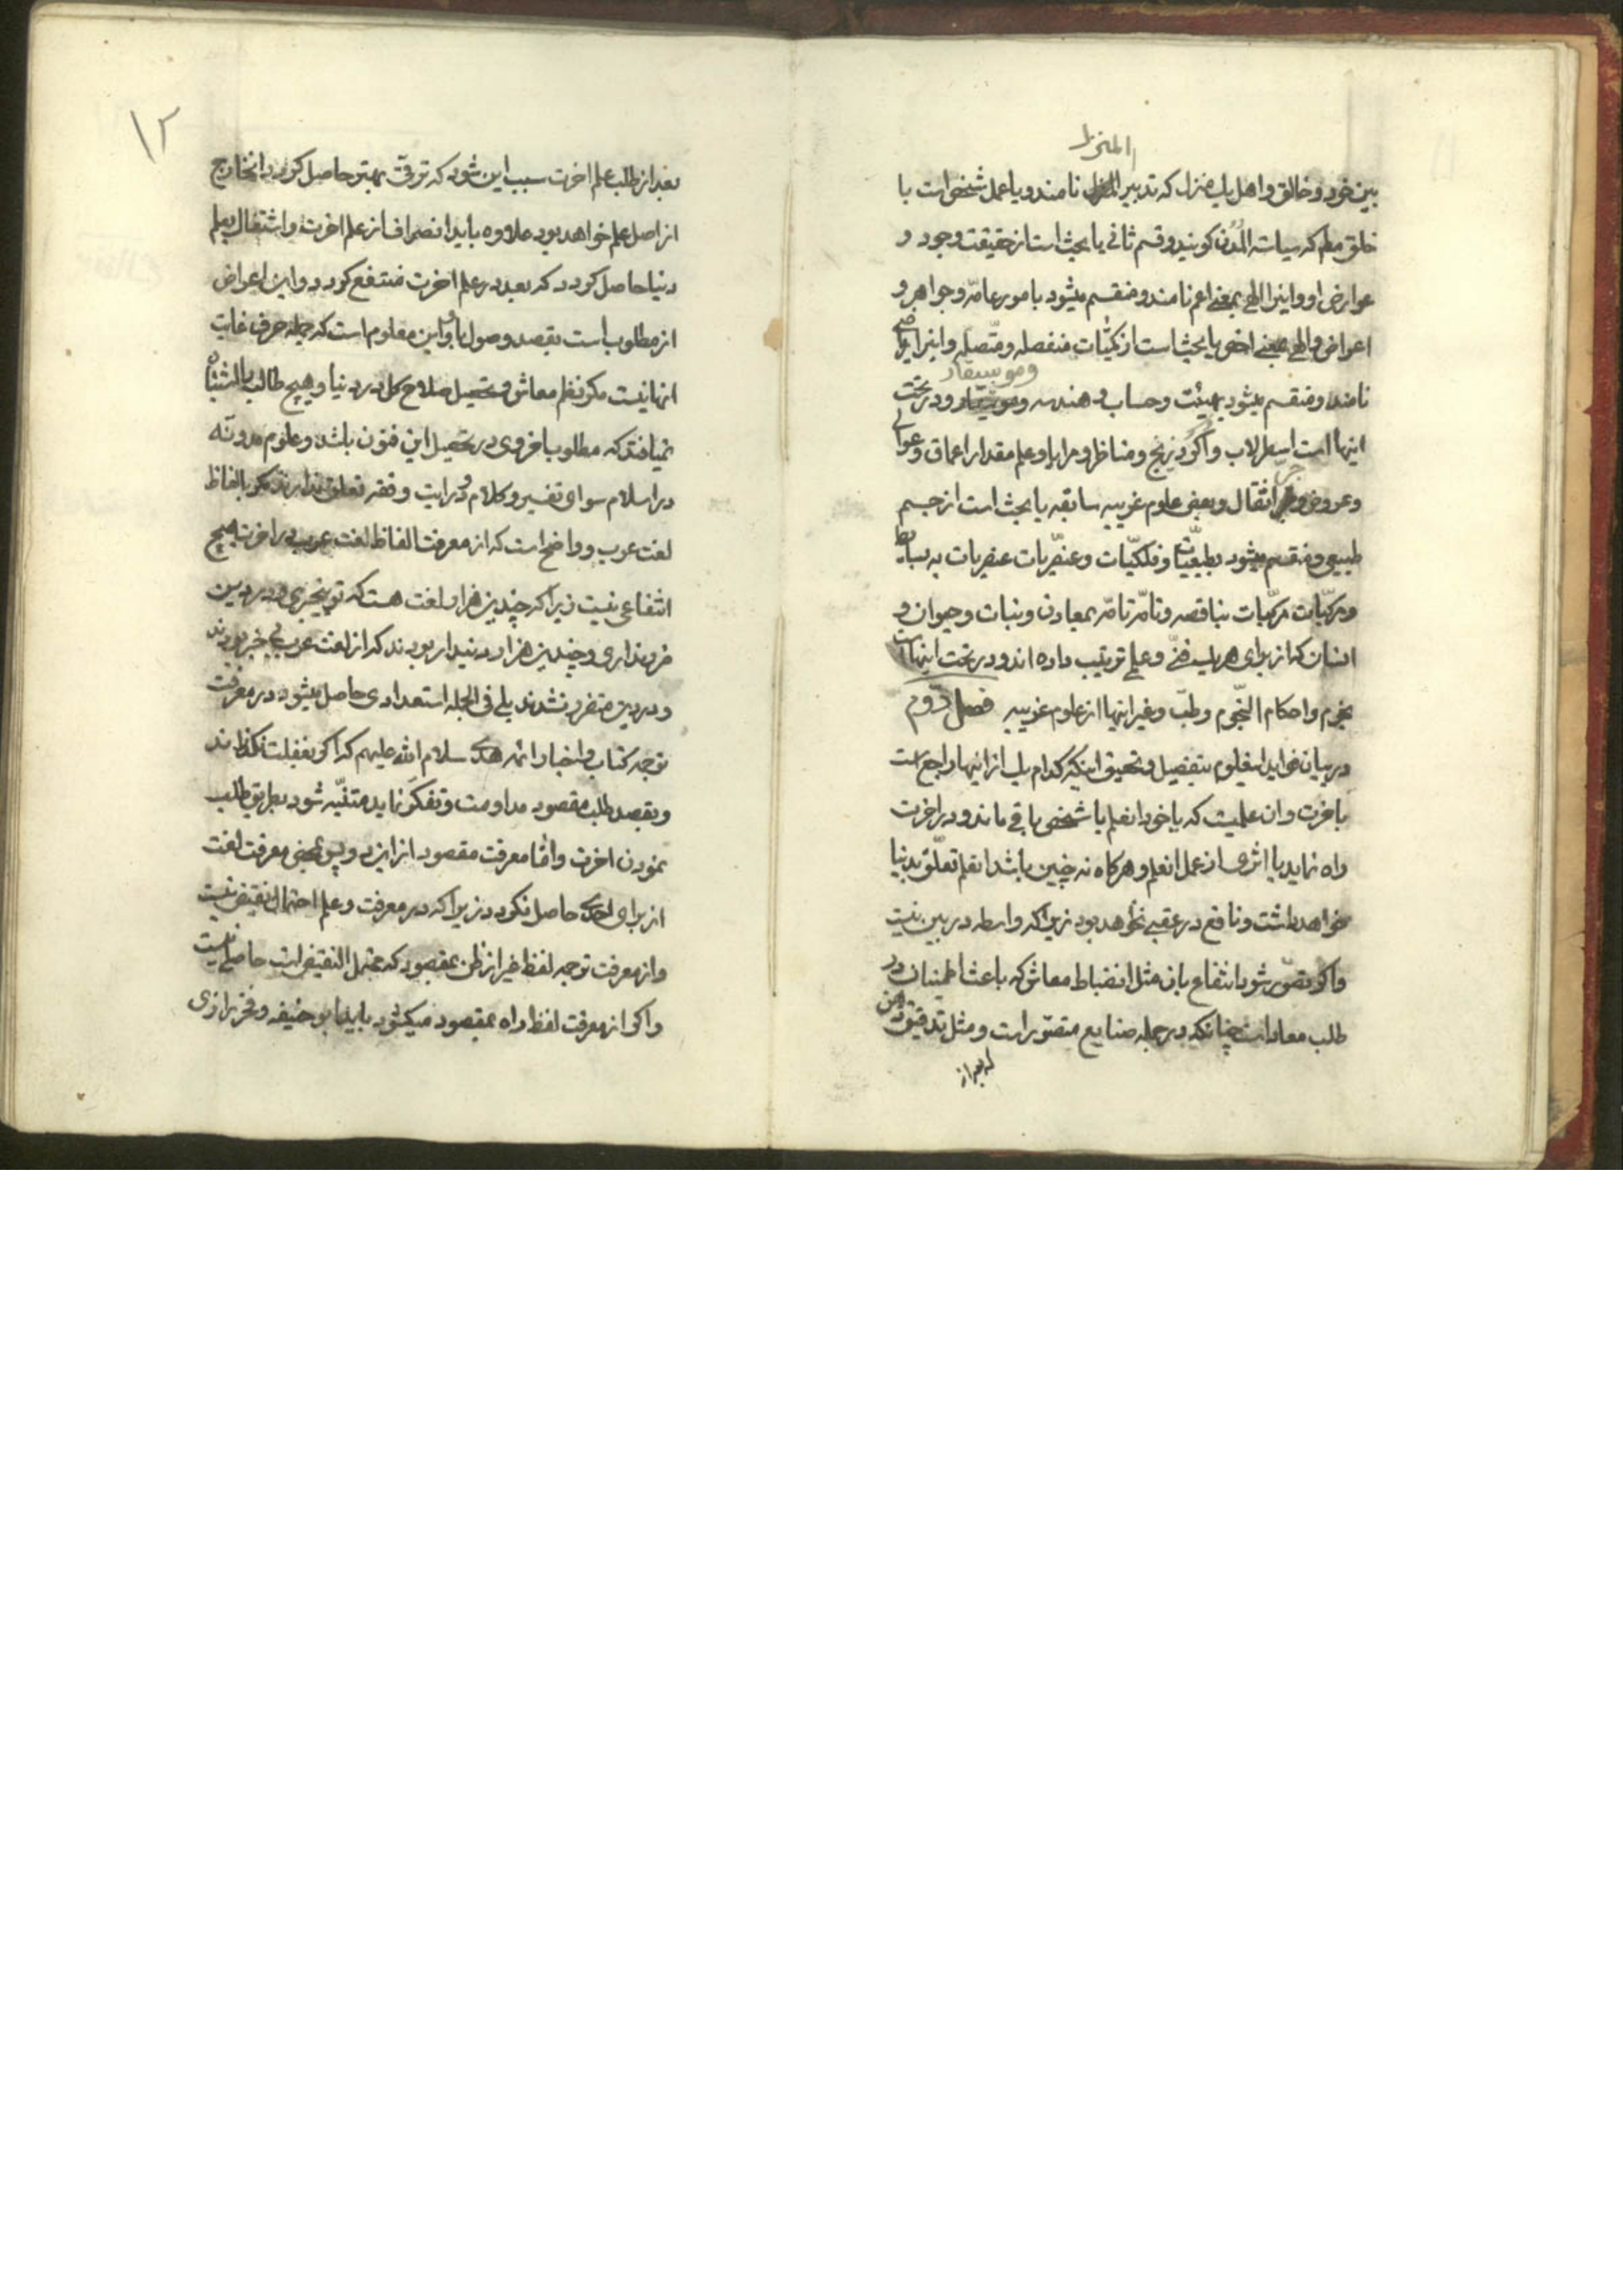 المنزل
بین خود و خالق و اهل یک منزل که تدبیر المنزل نامند و یا عمل شخص است با
خلق مطلم که سیاسة المدن کویند و قسم ثانی یا بحث است از حقیقت وجود و
عوارض او و اینرا الهی بمعنی اعم نامند و منقسم میشود بامور عامّه و جواهر و
اعراض و الهی بمعنی اخص یا بحث است از کمّیات منفصله و متّصله و اینرا ریاضی
و موسیقار
نامند و منقسم میشود بهیئت و حساب و هندسه و و در تحت
اینها است اسطرلاب و اکر و زیج و مناظر و مرایا و علم مقدار اعماق و عوالی
و عروض و جر اثقال و بعض علوم غریبه سابقه یا بحث است از جسم
طبیعی و منقسم میشود بطبیعیّات و فلکیّات و عنصریات عنصریات به بسایط
و مرکّبات مرکّبات بناقصه و تامّه تامّه بمعادن و نبات و حیوان و
انسان که از برای هر یک فنّی و علمی ترتیب داده اند و در تحت اینهاست
نجوم و احکام النّجوم و طبّ و غیر اینها از علوم غریبه فصل دوّم
در بیان فواید اینعلوم بتفصیل و تحقیق اینکه کدام یک از اینها راجع است
باخرت و ان علمیست که یا خود انعلم با شخص باقی ماند و در اخرت
راه نماید یا اثری از عمل انعلم و هرکاه نه چنین باشد انعلم تعلّق بدنیا
خواهد داشت و نافع در عقبی نخواهد بود زیرا که واسطه در بین نیست
و اکر تصوّر شود انتفاع بان مثل انضباط معاش که باعث اطمینان در
طلب معاد است چنانکه در جمله صنایع متصوّر است و مثل تدقیق ذهن
که بعد از
۱۲
بعد از طلب علم اخرت سبب این شود که ترقّی بهتر حاصل کردد انخارج
از اصل علم خواهد بود علاوه باید انصراف از علم اخرت و اشتغال بعلم
دنیا حاصل کردد که بعد در علم اخرت منتفع کردد و این اعراض
از مطلوب است بقصد وصول باو و این معلوم است که جمله حرف غایت
انها نیست مکر نظم معاش و تحصیل صلاح کل در دنیا و هیچ طالب بالاشتباه
نمیافتد که مطلوب اخروی در تحصیل این فنون باشد و علوم مدونّه
در اسلام سوای تفسیر و کلام و درایت و فقه تعلق ندارند مکر بالفاظ
لغت عرب و واضح است که از معرفت الفاظ لغت عرب در اخرت هیچ
انتفاعی نیست زیرا که چندین هزار لغت هست که تو بیخبری و در دین
ضرر نداری و چندین هزار دیندار بودند که از لغت عرب بی خبر بودند
و در دین متضرر نشدند بلی فی الجمله استعدادی حاصل میشود در معرفت
توجه کتاب و اخبار ائمه هدی سلام الله علیهم که اکر بغفلت نکذراند
و بقصد طلب مقصود مداومت و تفکّر نماید متنبّه شود بطریق طلب
نمودن اخرت و امّا معرفت مقصود از این دو پس بمحض معرفت لغت
از برای احدی حاصل نکردد زیرا که در معرفت و علم احتمال نقیض نیست
و از معرفت توجه لفظ غیر از ظن بمقصود که محتمل النقیض است حاصل نیست
و اکر از معرفت لفظ راه بمقصود میکشود باید ابو حنیفه و فخر رازی